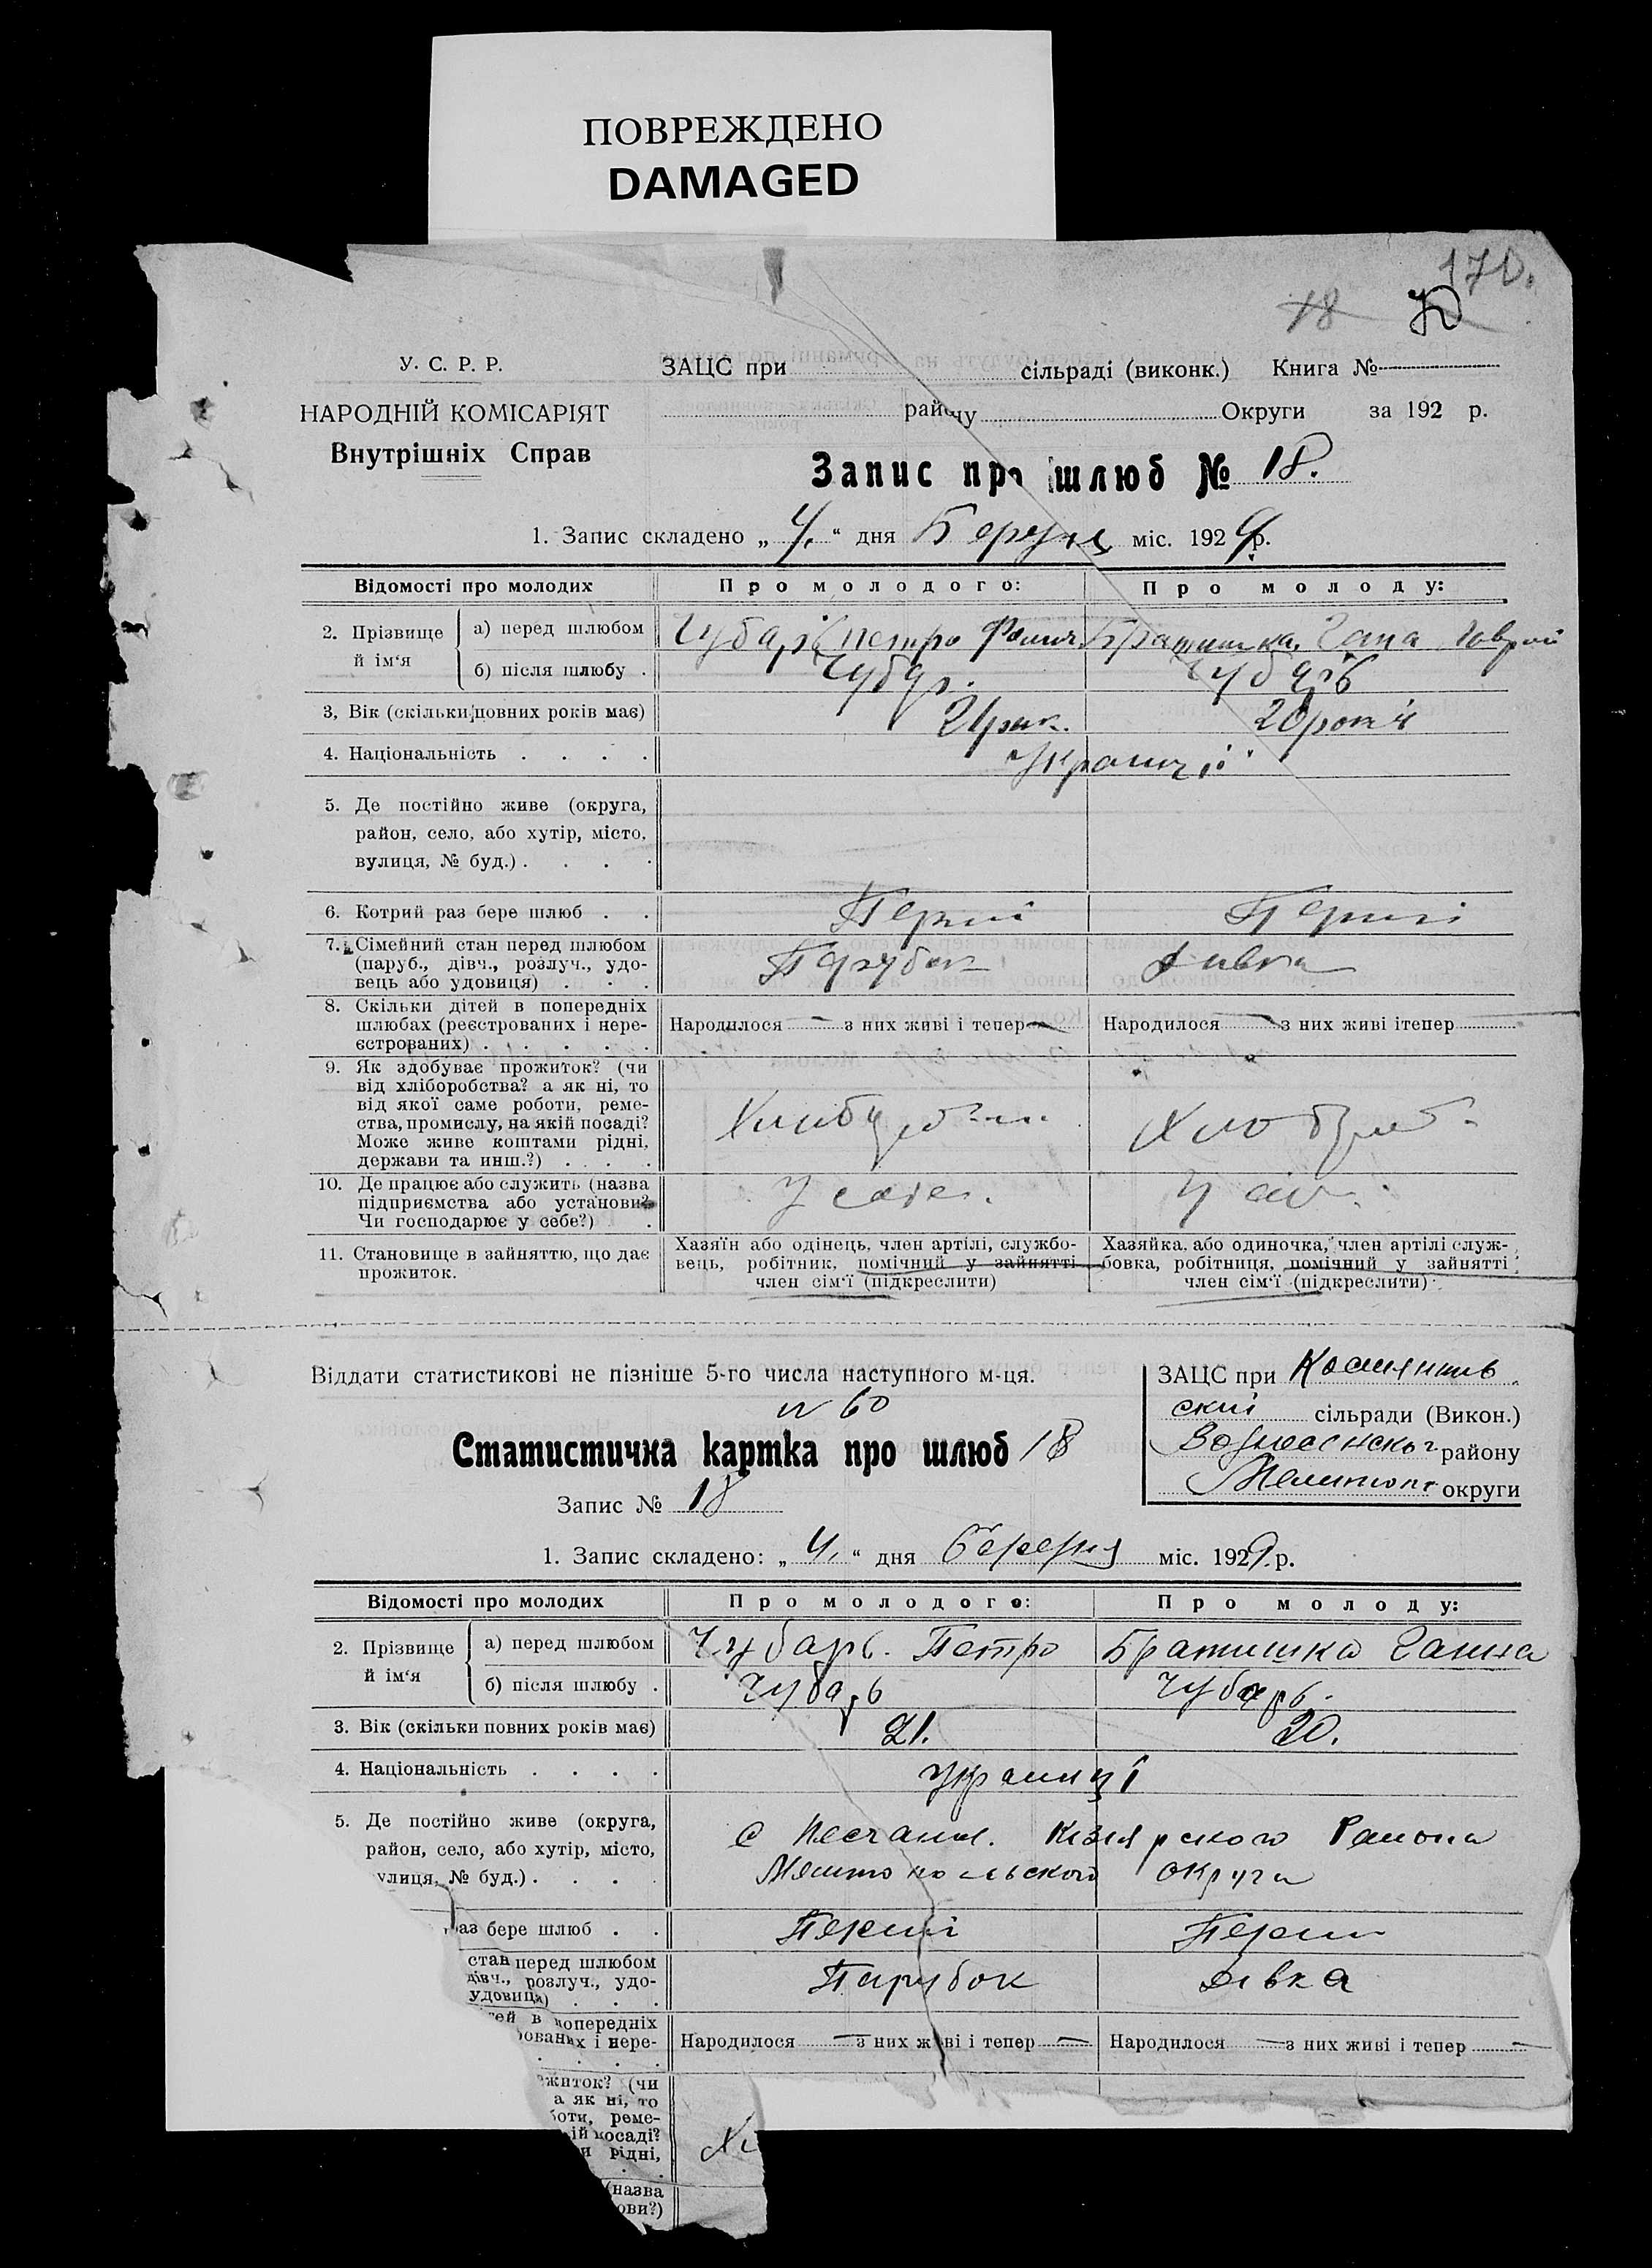 ПОВРЕЖДЕНО
DAMAGED
170.
18
У. С. Р. Р.
НАРОДНІЙ КОМІСАРІЯТ
Внутрішніх Справ
ЗАЦС при сільраді (виконк.) Книга №
району Округи за 192 р.
Запис про шлюб № 18.
1. Запис складено „ 4. “ дня Березня міс. 1929 р.
Відомості про молодих
Про молодого:
Про молоду:
2. Прізвище й ім‘я
а) перед шлюбом
Чубарь Петро
Братишка
б) після шлюбу .
Чубарь
Чубарь
3, Вік (скільки повних років має)
21 рік.
20 років
4. Національність . . . .
Українці
5. Де постійно живе (округа,
район, село, або хутір, місто,
вулиця, № буд.) . . . .
6. Котрий раз бере шлюб . .
Перший
Перший
7. Сімейний стан перед шлюбом
(паруб., дівч., розлуч., удо-
вець або удовиця) . . .
Парубок
Дивка
8. Скільки дітей в попередніх
шлюбах (реєстрованих і нере-
єстрованих) . . . . .
Народилося — з них живі і тепер —
Народилося — з них живі ітепер
9. Як здобуває прожиток? (чи
від хліборобства? а як ні, то
від якої саме роботи, реме-
ства, промислу, на якій посаді?
Може живе коштами рідні,
держави та инш.?) . . . .
10. Де працює або служить (назва
підприємства або установи?
Чи господарює у себе?) .
11. Становище в зайняттю, що дає
прожиток.
Хазяїн або одінець, член артілі, службо-
вець, робітник, помічний у зайнятті
член сім‘ї (підкреслити)
Хазяйка, або одиночка, член артілі служ-
бовка, робітниця, помічний у зайнятті
член сім‘ї (підкреслити)
Віддати статистикові не пізніше 5-го числа наступного м-ця.
№ 60
Статистична картка про шлюб 18
Запис № 18
ЗАЦС при
ский сільради (Викон.)
Вознесенског району
Мелитоп округи
1. Запис складено: „ 4. “ дня березня міс. 1929. р.
Відомості про молодих
Про молодого:
Про молоду:
2. Прізвище й ім‘я
а) перед шлюбом
Чубарь. Петро
Братишка Ганна
б) після шлюбу .
Чубарь
Чубарь.
3. Вік (скільки повних років має)
21.
20.
4. Національність . . . .
Українці
5. Де постійно живе (округа,
район, село, або хутір, місто,
вулиця, № буд.) . . . .
с Песчаное. Кізіярского Района
Мелитопольского округа
раз бере шлюб . .
Перший
Перший
стан перед шлюбом
дівч., розлуч., удо-
удовиця) . . .
Парубок
дівка
тей в попередніх
рованих і нере-
Народилося — з них живі і тепер —
Народилося — з них живі і тепер —
ожиток? (чи
а як ні, то
боти, реме-
ій посаді?
и рідні,
(назва
ови?)